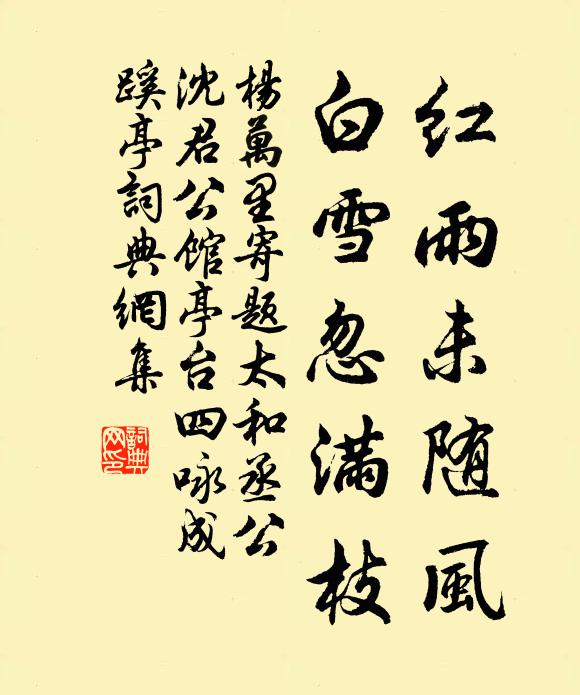 红雨未随風
白雪忽滿枝
楊萬里寄题太和丞公
沈君公馆亭台四咏成
蹊亭詞典網集
詞典
网印